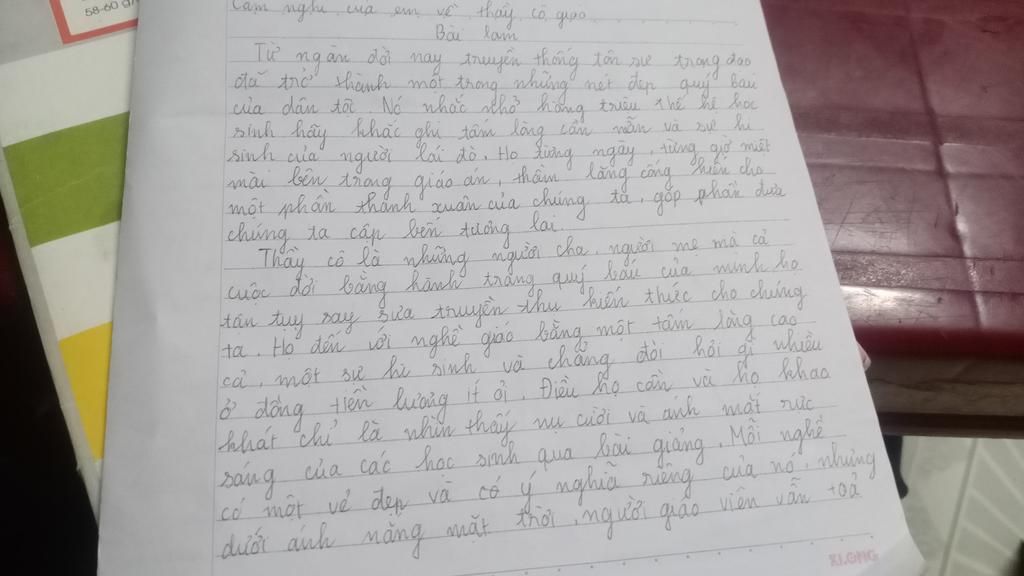 58-60 g/
Cảm nghĩ của em về thầy cô giáo
Bài làm
Từ ngàn đời nay truyền thống tôn sư trọng đạo
đã trở thành một trong những nét đẹp quý báu
của dân tộc. Nó nhắc nhở hàng triệu thế hệ học
sinh hãy khắc ghi tấm lòng cần mẫn và sự hi
sinh của người lái đò. Họ từng ngày, từng giờ miệt
mài bên trong giáo án, thầm lặng cống hiến cho
một phần thanh xuân của chúng ta, góp phần đưa
chúng ta cập bến tương lai.
Thầy cô là những người cha, người mẹ mà cả
cuộc đời bằng hành trang quý báu của mình họ
tận tuỵ say sưa truyền thụ kiến thức cho chúng
ta. Họ đến với nghề giáo bằng một tấm lòng cao
cả, một sự hi sinh và chẳng đòi hỏi gì nhiều
ở đồng tiền lương ít ỏi. Điều họ cần và họ khao
khát chỉ là nhìn thấy nụ cười và ánh mắt rực
sáng của các học sinh qua bài giảng. Mỗi nghề
có một vẻ đẹp và có ý nghĩa riêng của nó, nhưng
dưới ánh nắng mặt trời, người giáo viên vẫn toả
KLONG